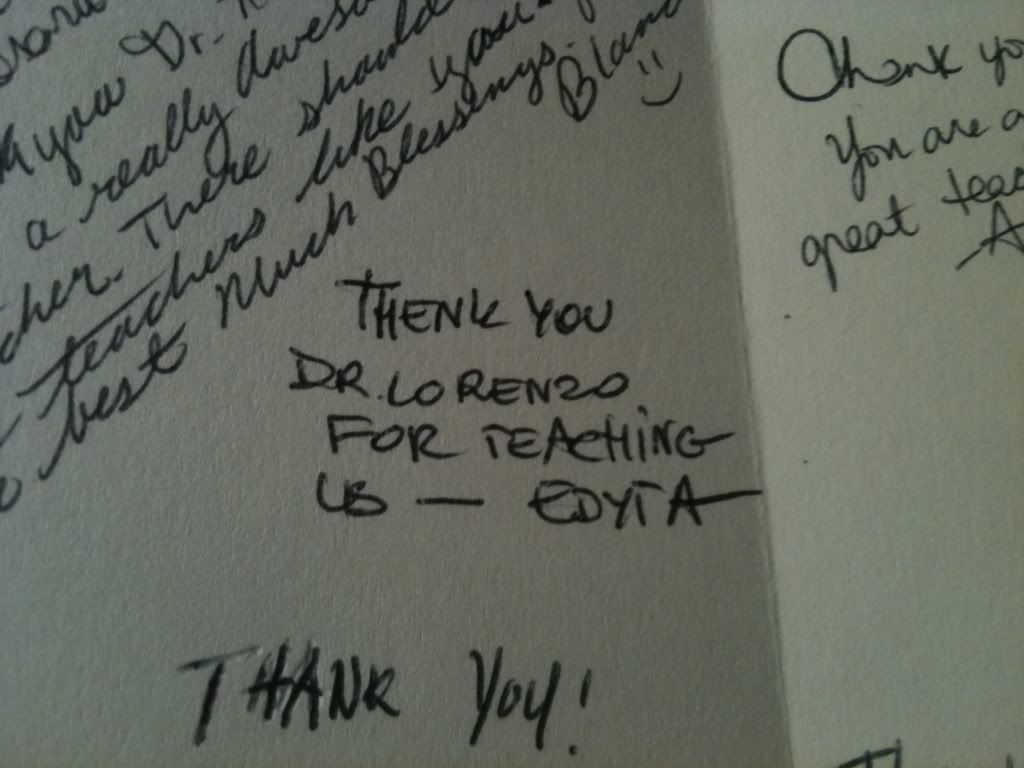 you Dr.
a really
There should
teachers like you.
best Much Blessings.
THENK YOU
DR. LORENZO
FOR TEACHING
US — EDYTA
THANK YOU!
Thank
You are a
great
A